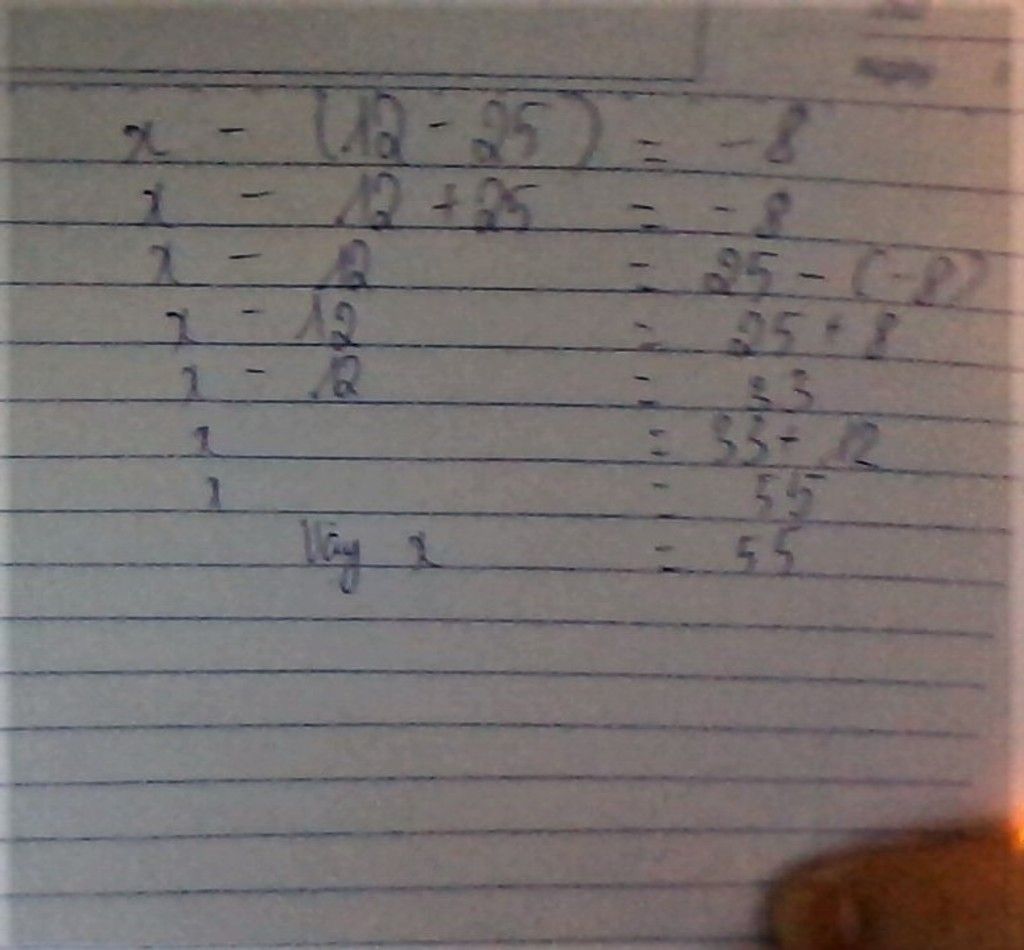 x - (12 - 25) = -8
x - 12 + 25 = -8
x - 12 = 25 - (-8)
x - 12 = 25 + 8
x - 12 = 33
x = 33 - 12
x = 55
Vậy x = 55